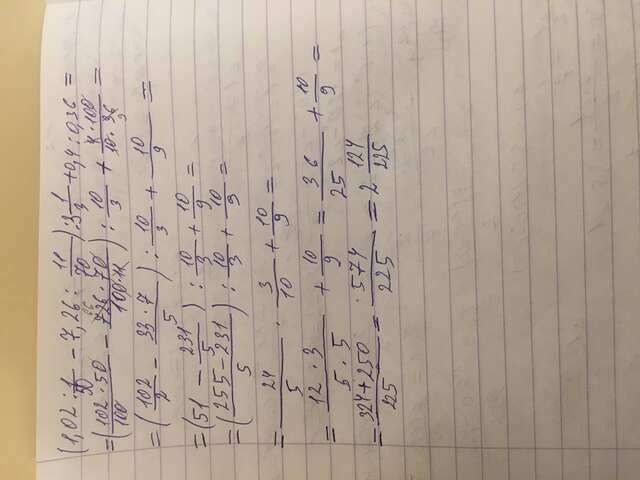 (1,02 : 1/50 − 7,26 : 11/70) : 3 1/3 + 0,4 : 0,36 =
= (102 · 50/100 − 726 · 70/100 · 11) : 10/3 + 4 · 100/10 · 36 =
= (102/2 − 33 · 7/5) : 10/3 + 10/9 =
= (51 − 231/5) : 10/3 + 10/9 =
= (255 − 231/5) : 10/3 + 10/9 =
= 24/5 · 3/10 + 10/9 =
= 12 · 3/5 · 5 + 10/9 = 36/25 + 10/9 =
= 324 + 250/225 = 574/225 = 2 124/225